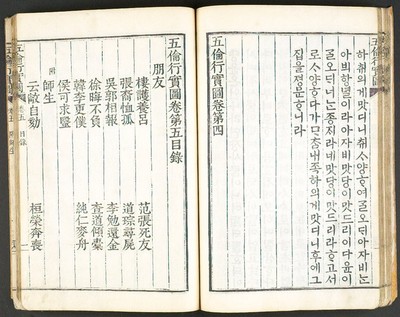 五倫行實圖
하츄의게맛디니츄ㅣᄉᆞ양ᄒᆞ여ᄀᆞᆯ오ᄃᆡ아자비ᄂᆞᆫ
아븨항녈이라아자비맛당이맛드리이다윤이
ᄀᆞᆯ오ᄃᆡ너ᄂᆞᆫ종지라네맛당이맛드리라ᄒᆞ고서
로ᄉᆞ양ᄒᆞ다가ᄆᆞᄎᆞᆷ내족하의게맛디니후에그
집을졍문ᄒᆞ니라
五倫行實圖卷第四
五倫行實圖卷第五目錄
朋友
樓護養呂 范張死友
張裔恤孤 道琮尋屍
吳郭相報 李勉還金
徐晦不負 查道傾橐
韓李更僕 純仁麥舟
侯可求醫
附 師生
云敞自劾 桓榮奔喪
五倫行實圖 卷五 目錄